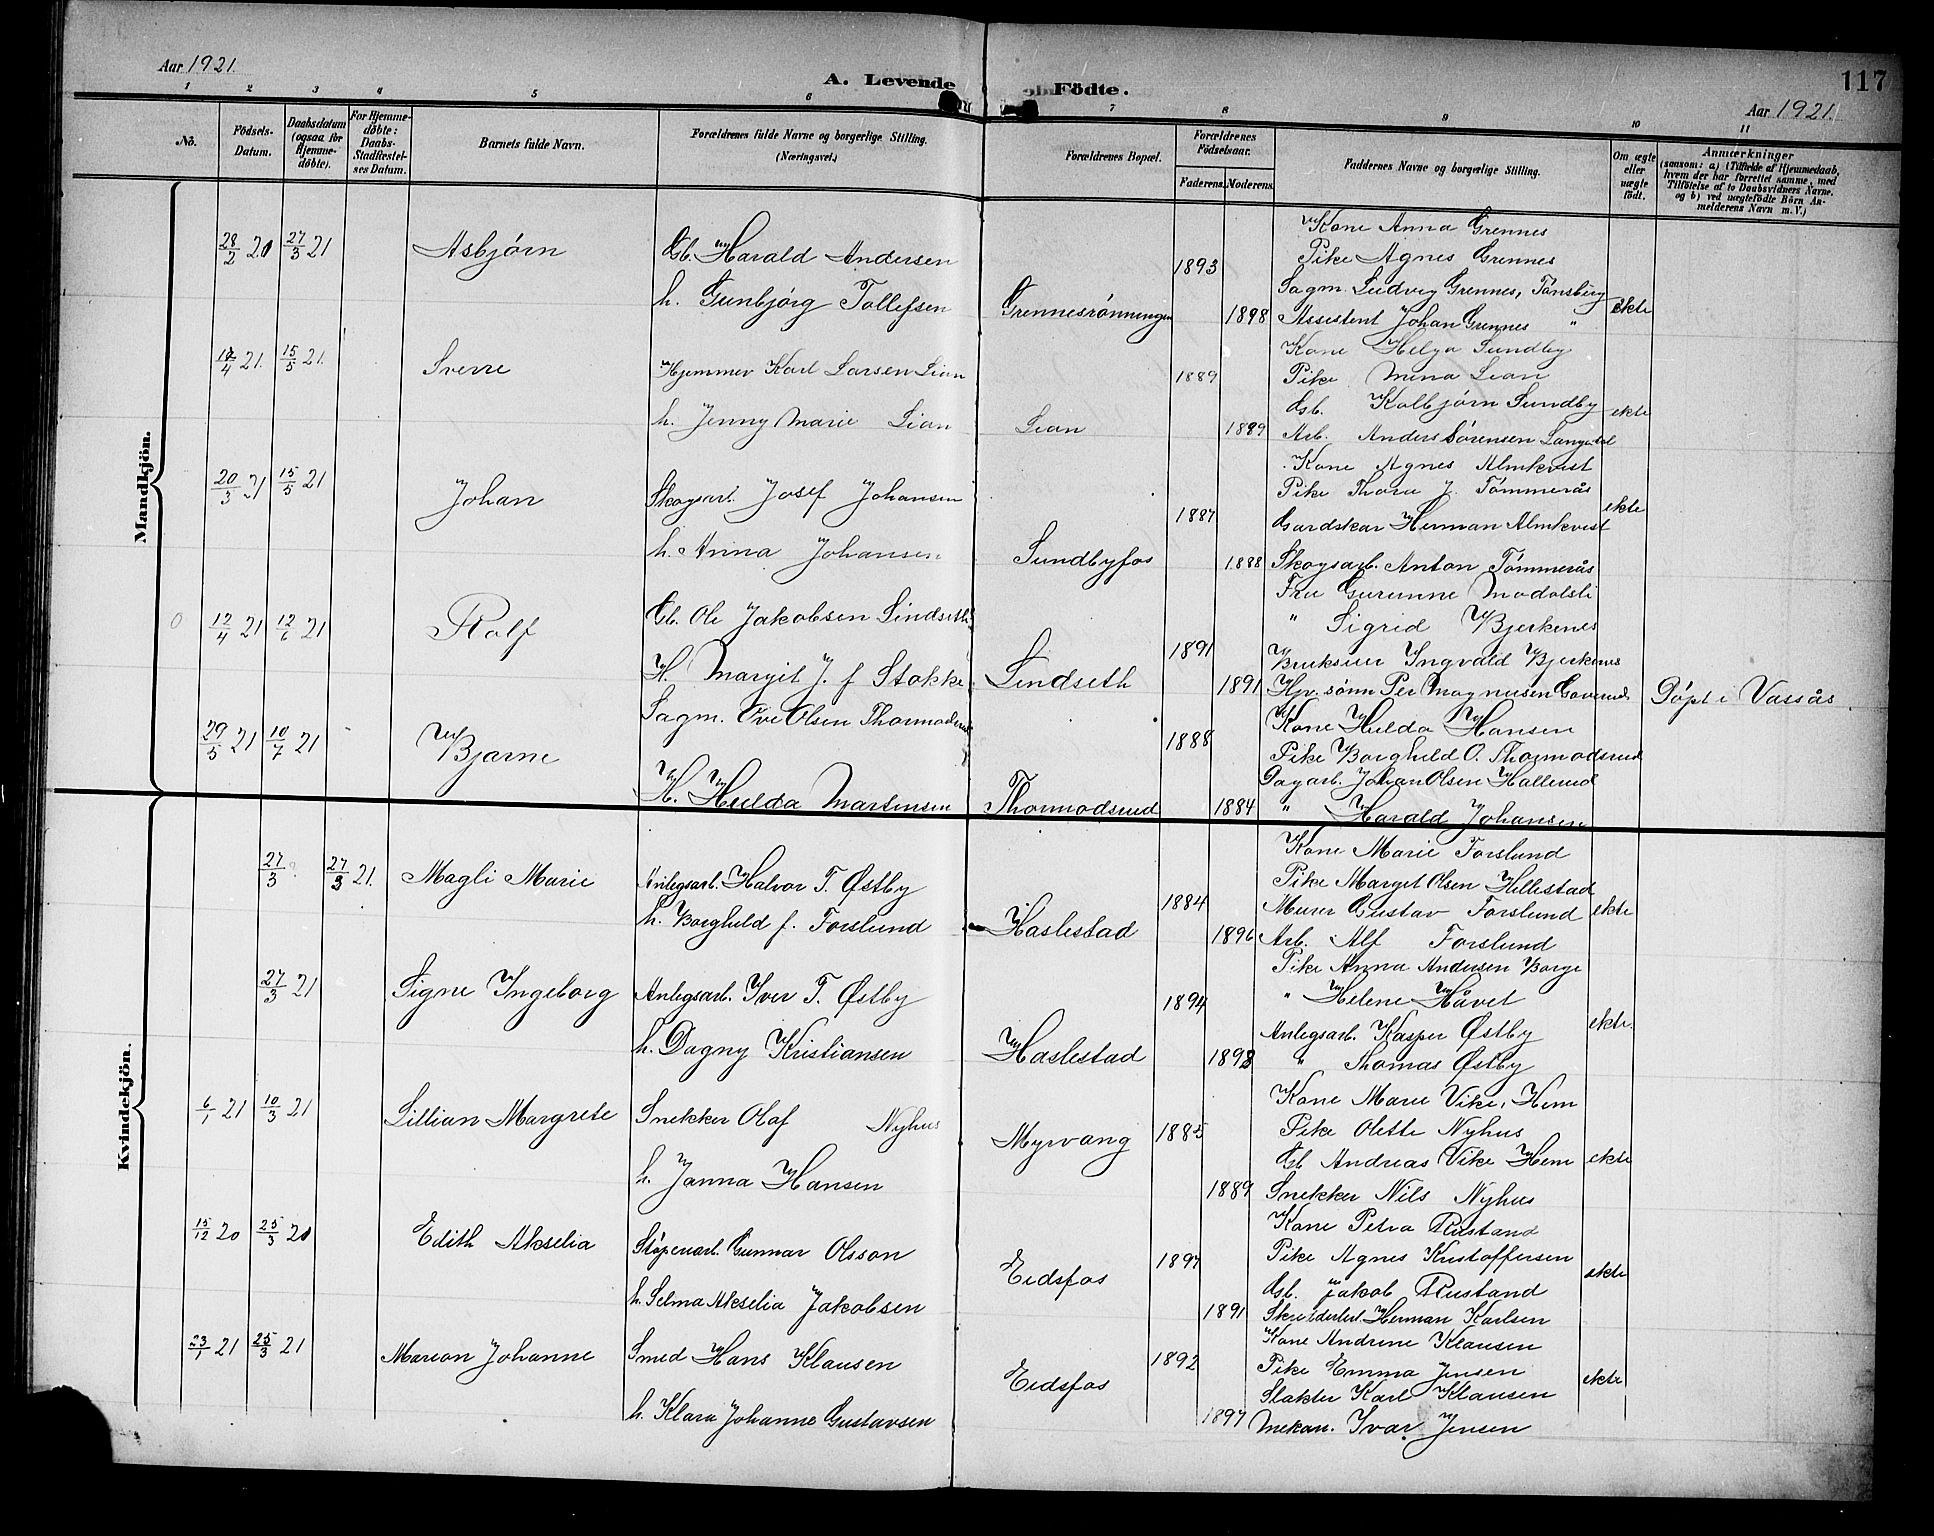 Aar 1921.
A. Levende Födte.
117
Aar 1921.
1 2 3 4 5 6 7 8 9 10 11
No.
Födsels-Datum.
Daabsdatum (ogsaa for Hjemme-döbte).
For Hjemme-döbte: Daabs-Stadfæstel-ses Datum.
Barnets fulde Navn.
Forældrenes fulde Navne og borgerlige Stilling.
(Næringsvei.)
Forældrenes Bopæl.
Forældrenes Födselsaar.
Faderens. Moderens.
Faddernes Navne og borgerlige Stilling.
Om ægte eller uægte födt.
Anmærkninger
(saasom: a) i Tilfælde af Hjemmedaab,
hvem der har forrettet samme, med
Tilföielse af to Daabsvidners Navne.
og b) ved uægtefödte Börn An-
melderens Navn m. V.)
Mandkjön.
28/2 20 27/3 21 Asbjørn Gb. Harald Andersen
h. Gunbjørg Tollefsen
Grennesrönningen 1893 1898
Kone Anna Grennes
Pike Agnes Grennes
Sagm. Ludvig Grennes, Tönsberg
Assistent Johan Grennes "
ekte
/4 21. 15/5 21. Sverre Hjemmev Karl Larsen Lian
h. Jenny Marie Lian
Lian 1889 1889
Kone Helga Sundby
Pike Mina Lian
Gsb. Kolbjørn Sundby
Arb. Anders Sørensen
ekte
20/3 21 15/5 21 Johan Skogsarb. Josef Johansen
h. Anna Johansen
Sundbyfos 1887 1888
Kone Agnes Almkvist
Pike Thora J. Tömmerås
Gardskar Herman Almkvist
Skogsarb. Anton Tömmerås
ekte
0 12/4 21 12/6 21 Rolf Gb. Ole Jakobsen Lindseth
H. Margit J. f Stokke
Lindseth 1891 1891
Fru Gurinne Modalsli
" Sigrid Bjerkenes
Brukseier Ingvald Bjerkenes
Hjv. sönn Per Magnusen
Döpt i Vassås
29/5 21 10/7 21 Bjarne Sagm. Ove Olsen Thormodsrud
H. Hulda Martinsen
Thormodsrud 1888 1884
Kone Hulda Hansen
Pike Borghild O. Thormodsrud
Dagarb. Johan Olsen Hallerud
" Harald Johansen
Kvindekjön.
27/3 27/3 21. Magli Marie Anlegsarb. Halvor T. Østby
h. Borghild f. Forslund
Haslestad 1884 1896
Kone Marie Forslund
Pike Margit Olsen Hillestad
Murer Gustav Forslund
Arb. Alf Forslund
ekte
27/3 21 Signe Ingeborg Anlegsarb. Iver T. Østby
h. Dagny Kristiansen
Haslestad 1894 1898
Pike Anna Andersen Borge
" Helene Håvet
Anlegsarb. Kasper Østby
" Thomas Østby
ekte.
6/1 21 10/3 21 Lillian Margrete Snekker Olaf Nyhus
h. Janna Hansen
Myrvang 1885 1889
Kone Marie Vike, Hem
Pike Olette Nyhus
Gb Andreas Vike Hem
Snekker Nils Nyhus
ekte
15/12 20 25/3 20 Edith Akselia Støperiarb. Gunnar Olsson
h. Selma Akselia Jakobsen
Eidsfos 1897 1891
Kone Petra Rustand
Pike Agnes Kristoffersen
Gsb. Jakob Rustand
Herman Karlsen
ekte
23/1 21 25/3 21 Marion Johanne Smed Hans Klausen
h. Klara Johanne Gustavsen
Eidsfos 1892 1897
Kone Andrine Klausen
Pike Emma Jensen
Slakter Karl Klausen
Mekan. Ivar Jensen
ekte